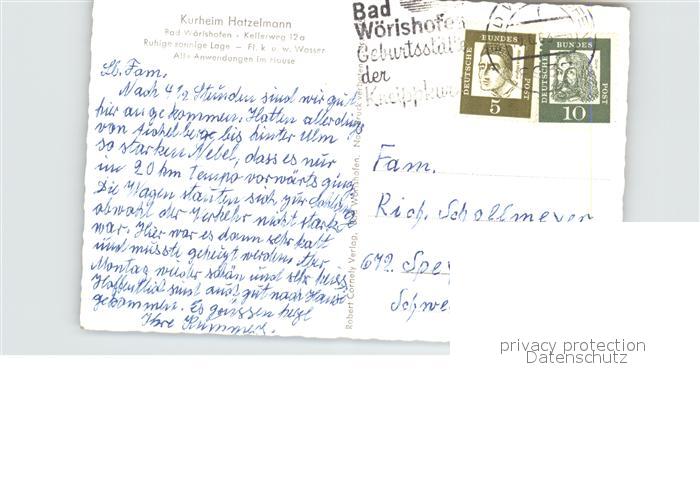 Kurheim Hatzelmann
Bad Wörishofen - Kellerweg 12a
Ruhige sonnige Lage — Fl. k. u. w. Wasser
Alle Anwendungen im Hause
Lb. Fam.
Nach 4½ Stunden sind wir gut
hier angekommen. Hatten allerdings
von Aichelberge bis hinter Ulm
so starken Nebel, dass es nur
im 20 km Tempo vorwärts ging.
Die Wagen stauten sich zur
obwohl der Verkehr nicht stark
war. Hier war es dann sehr kalt
und musste geheizt werden. Aber
Montag wieder schön und sehr heiss
Hoffentlich sind auch gut nach Hause
gekommen. Es grüssen herzl
Ihre Kummer.
Robert Cornely Verlag, Bad Wörishofen. Nachdruck verboten
Bad
Wörishofen
Geburtsstätte
der
Kneippkur
DEUTSCHE BUNDES POST
5
DEUTSCHE BUNDES POST
10
Fam.
Rich. Schollmeyer
672 Spey
Schwe
privacy protection
Datenschutz